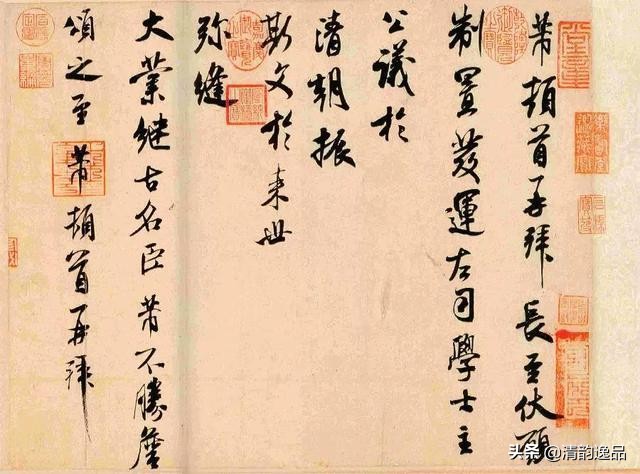 芾頓首再拜長至伏願
制置發運左司學士主
公議於
清朝振
斯文於来世
弥縫
大業継古名臣芾不勝詹
頌之至芾頓首再拜
头条 @清韵逸品